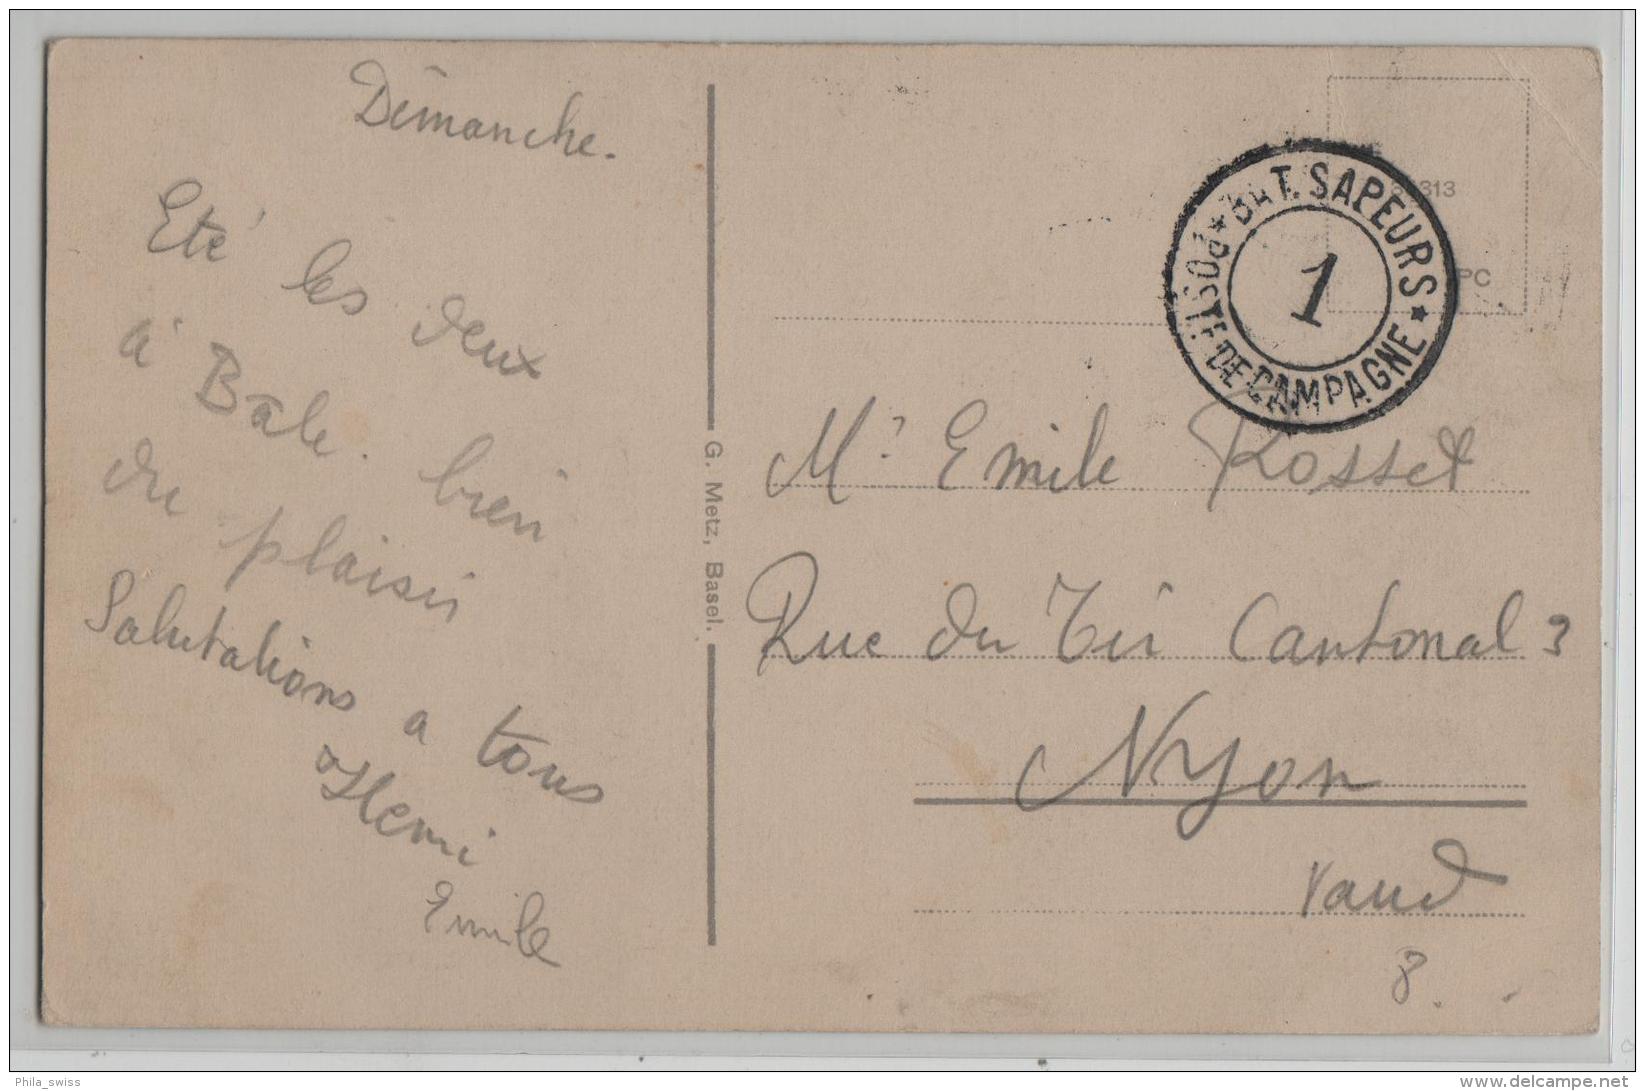 Dimanche.
Eté les deux
à Bâle. bien
du plaisir
Salutations a tous
Henri
Emile
G. Metz, Basel.
POSTE DE CAMPAGNE * BAT. SAPEURS *
1
313
PC
Mr Emile Rosset
Rue du Tir Cantonal 3
Nyon
Vaud
8.
Phila_swiss
delcampe.net